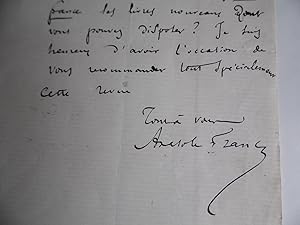 france les livres nouveaux dont
vous pouvez disposer? Je suis
heureux d'avoir l'occasion de
vous recommander tout spécialement
cette revue
Tout à vous
Anatole France